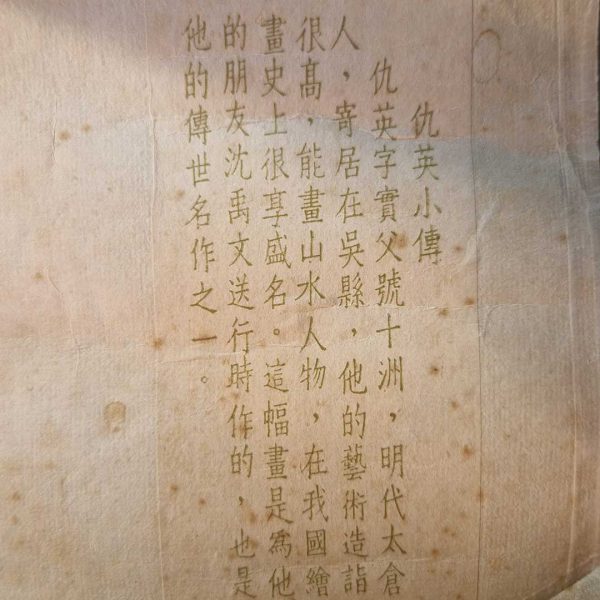 仇英小傳
仇英字實父號十洲，明代太倉
人，寄居在吳縣，他的藝術造詣
很高，能畫山水人物，在我國繪
畫史上很享盛名。這幅畫是為他
的朋友沈禹文送行時作的，也是
他的傳世名作之一。